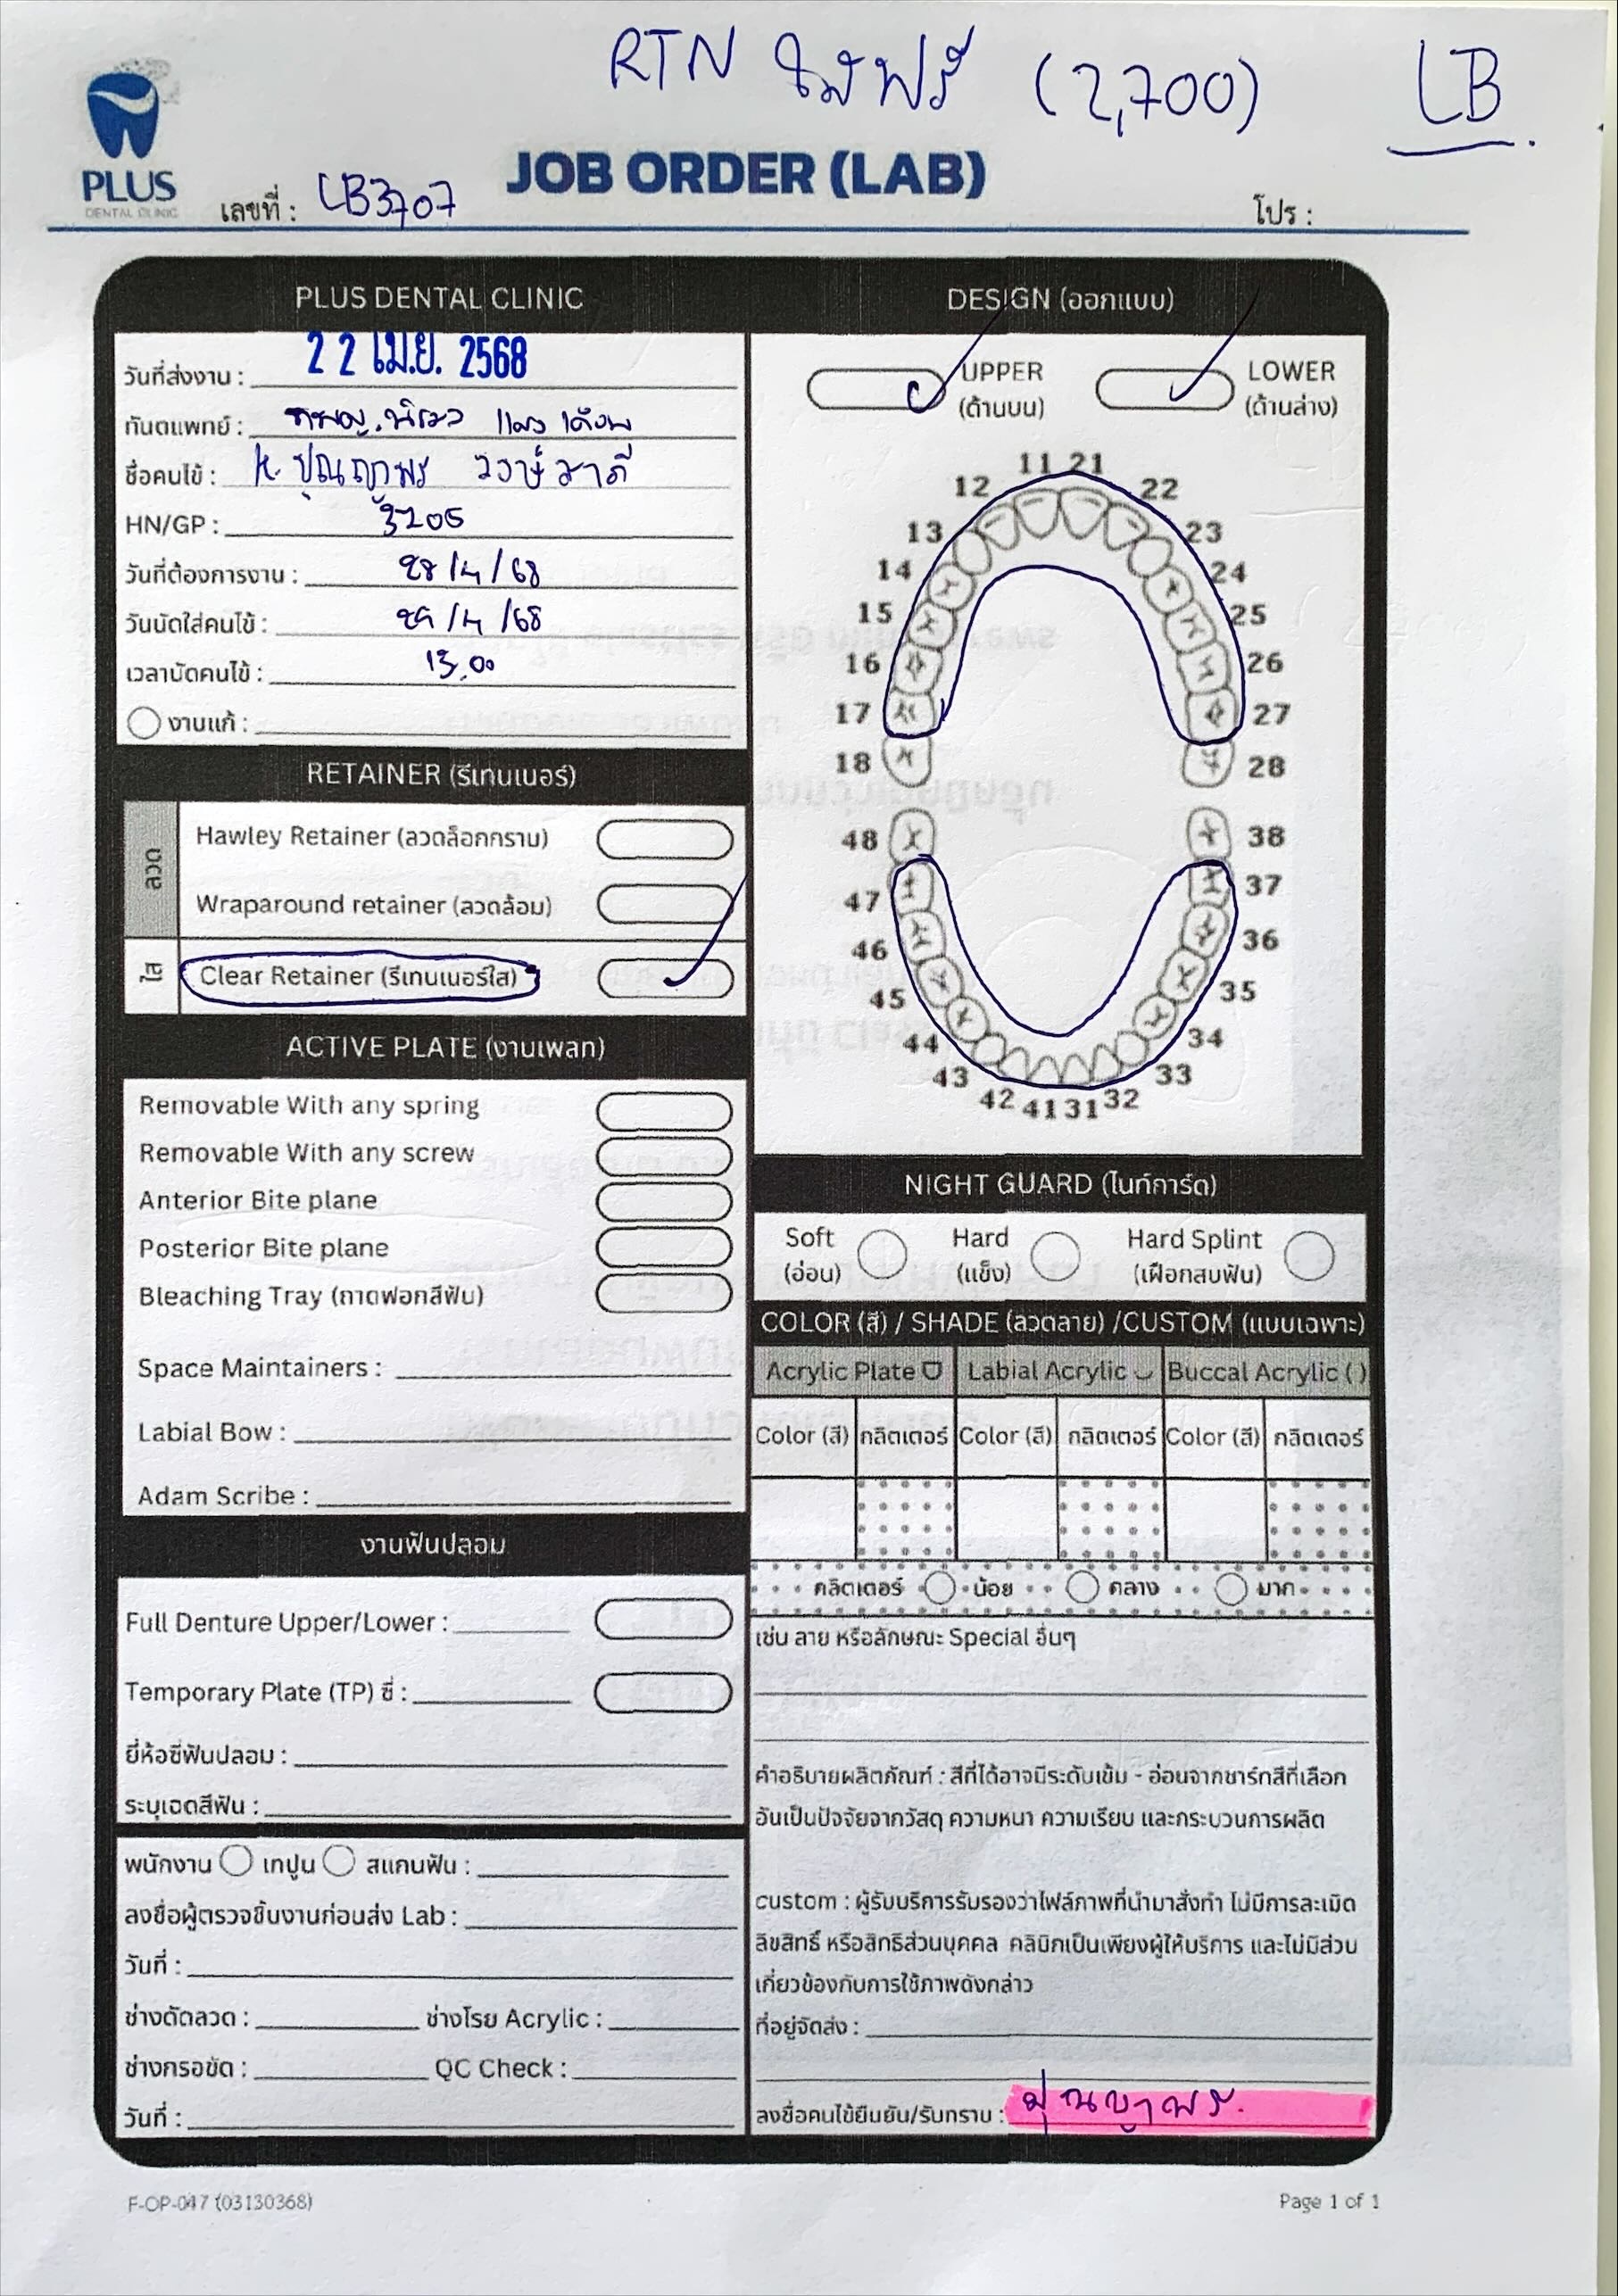 RTN ใสฟรี (2,700) LB
PLUS
DENTAL CLINIC
JOB ORDER (LAB)
เลขที่ : LB3707
โปร :
PLUS DENTAL CLINIC
วันที่ส่งงาน : 22 เม.ย. 2568
ทันตแพทย์ : ทพญ.
ชื่อคนไข้ : K. ปุณญาพร
HN/GP : 3205
วันที่ต้องการงาน : 28/4/68
วันนัดใส่คนไข้ : 29/4/68
เวลานัดคนไข้ : 13.00
งานแก้ :
RETAINER (รีเทนเนอร์)
ลวด
Hawley Retainer (ลวดล็อกกราบ)
Wraparound retainer (ลวดล้อม)
ใส
Clear Retainer (รีเทนเนอร์ใส)
ACTIVE PLATE (งานเพลท)
Removable With any spring
Removable With any screw
Anterior Bite plane
Posterior Bite plane
Bleaching Tray (ถาดฟอกสีฟัน)
Space Maintainers :
Labial Bow :
Adam Scribe :
งานฟันปลอม
Full Denture Upper/Lower :
Temporary Plate (TP) ซี่ :
ยี่ห้อซี่ฟันปลอม :
ระบุเฉดสีฟัน :
พนักงาน เทปูน สแกนฟัน :
ลงชื่อผู้ตรวจชิ้นงานก่อนส่ง Lab :
วันที่ :
ช่างดัดลวด : ช่างโรย Acrylic :
ช่างกรอขัด : QC Check :
วันที่ :
DESIGN (ออกแบบ)
UPPER
(ด้านบน)
LOWER
(ด้านล่าง)
11 21
12 22
13 23
14 24
15 25
16 26
17 27
18 28
48 38
47 37
46 36
45 35
44 34
43 33
42 41 31 32
NIGHT GUARD (ไนท์การ์ด)
Soft
(อ่อน)
Hard
(แข็ง)
Hard Splint
(เฝือกสบฟัน)
COLOR (สี) / SHADE (ลวดลาย) /CUSTOM (แบบเฉพาะ)
Acrylic Plate Labial Acrylic Buccal Acrylic ( )
Color (สี) กลิตเตอร์ Color (สี) กลิตเตอร์ Color (สี) กลิตเตอร์
กลิตเตอร์ น้อย กลาง มาก
เช่น ลาย หรือลักษณะ Special อื่นๆ
คำอธิบายผลิตภัณฑ์ : สีที่ได้อาจมีระดับเข้ม - อ่อนจากชาร์ทสีที่เลือก
อันเป็นปัจจัยจากวัสดุ ความหนา ความเรียบ และกระบวนการผลิต
custom : ผู้รับบริการรับรองว่าไฟล์ภาพที่นำมาสั่งทำ ไม่มีการละเมิด
ลิขสิทธิ์ หรือสิทธิส่วนบุคคล คลินิกเป็นเพียงผู้ให้บริการ และไม่มีส่วน
เกี่ยวข้องกับการใช้ภาพดังกล่าว
ที่อยู่จัดส่ง :
ลงชื่อคนไข้ยืนยัน/รับทราบ : ปุณญาพร.
F-OP-047 (03130368)
Page 1 of 1